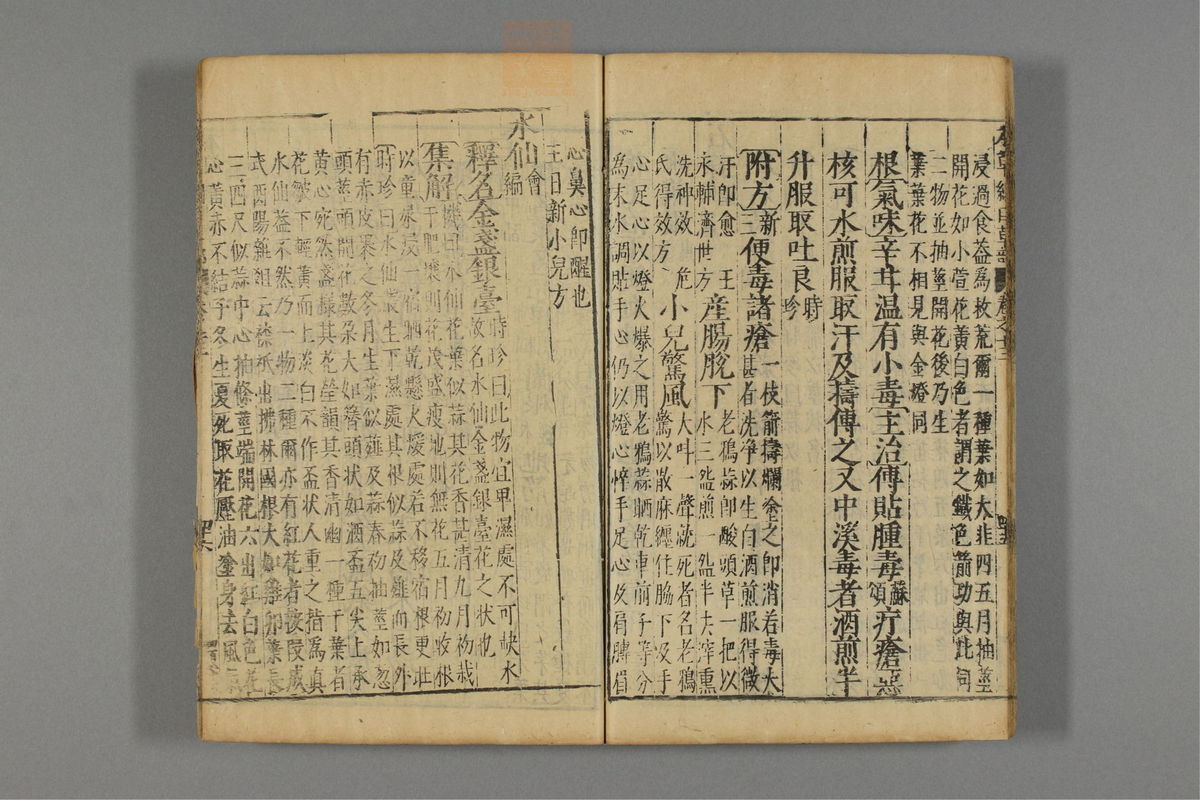 浸過食蓋爲救荒爾一種葉如大韭四五月抽莖
開花如小萱花黃白色者謂之鐵色箭功與此同
二物並抽莖開花後乃生
葉葉花不相見與金燈同
根氣味辛甘温有小毒主治傅貼腫毒蘇頌疔瘡惡
核可水煎服取汗及擣傅之又中溪毒者酒煎半
升服取吐良時珍
附方新三便毒諸瘡一枝箭擣爛塗之即消若毒太甚者洗淨以生白酒煎服得微
汗即愈王永輔濟世方產腸脫下老鴉蒜即酸頭草一把以水三盌煎一盌半去滓熏
洗神效危氏得效方小兒驚風大叫一聲就死者名老鴉驚以散麻纏住脇下及手
心足心以燈火爆之用老鴉蒜晒乾車前子等分
爲末水調貼手心仍以燈心焠手足心及肩膊眉
心鼻心即醒也
王日新小兒方
水仙會編
釋名金盞銀臺時珍曰此物宜卑濕處不可缺水故名水仙金盞銀臺花之狀也
集解機曰水仙花葉似蒜其花香甚清九月初栽于肥壤則花茂盛瘦地則無花五月初收根
以童尿浸一宿晒乾懸火煖處若不移宿根更旺
時珍曰水仙叢生下濕處其根似蒜及薤而長外
有赤皮裹之冬月生葉似薤及蒜春初抽莖如葱
頭莖頭開花數朵大如簪頭狀如酒盃五尖上承
黃心宛然盞樣其花瑩韻其香清幽一種千葉者
花皺下輕黃而上淡白不作盃狀人重之指爲真
水仙蓋不然乃一物二種爾亦有紅花者按段成
式酉陽雜俎云捺祗出拂林國根大如雞卵葉長
三四尺似蒜中心抽條莖端開花六出紅白色花
心黃赤不結子冬生夏死取花壓油塗身去風氣